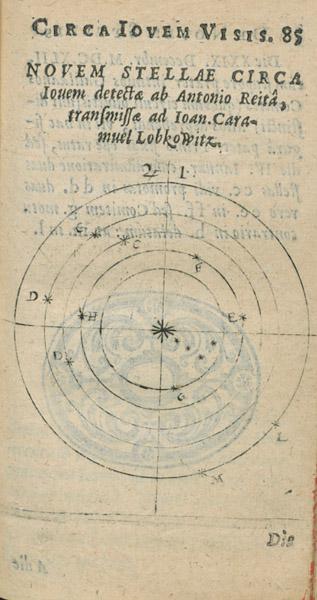 CIRCA IOVEM VISIS. 85
NOVEM STELLAE CIRCA
Iovem detectæ ab Antonio Reitâ,
transmissæ ad Ioan. Cara-
muel Lobkowitz.
♃ 1
C
F
D
H
E
D
G
L
M
Die